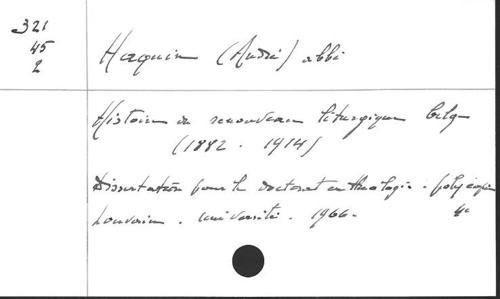 321
45
2
Haquin (André) abbé
Histoire du renouveau liturgique belge
(1882 - 1914)
Dissertation pour le doctorat en théologie - polycopiée
Louvain. Université. 1966. 4°